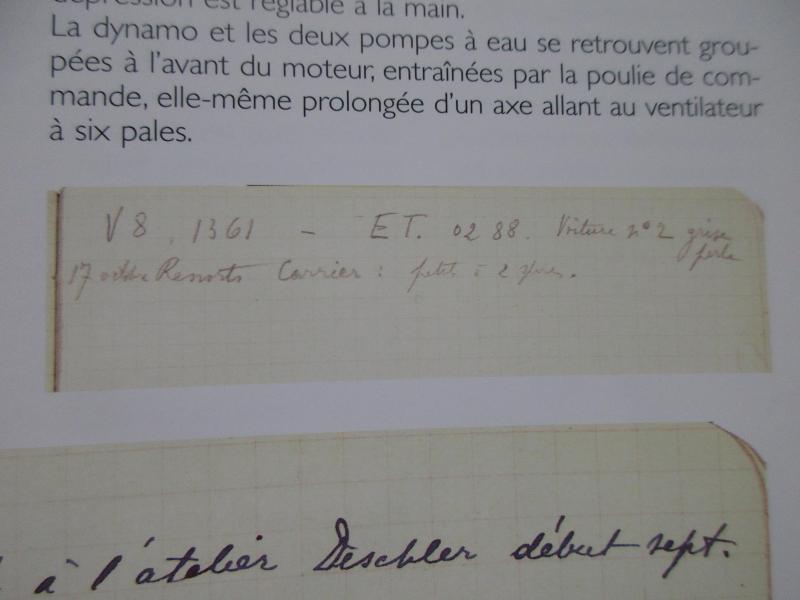 dépression est réglable à la main.
La dynamo et les deux pompes à eau se retrouvent grou-
pées à l'avant du moteur, entraînées par la poulie de com-
mande, elle-même prolongée d'un axe allant au ventilateur
à six pales.
V8. 1361 - ET. 0288. Voiture n° 2 grise
perle
17 Carrier : petit à 2
à l'atelier Deschler début sept.